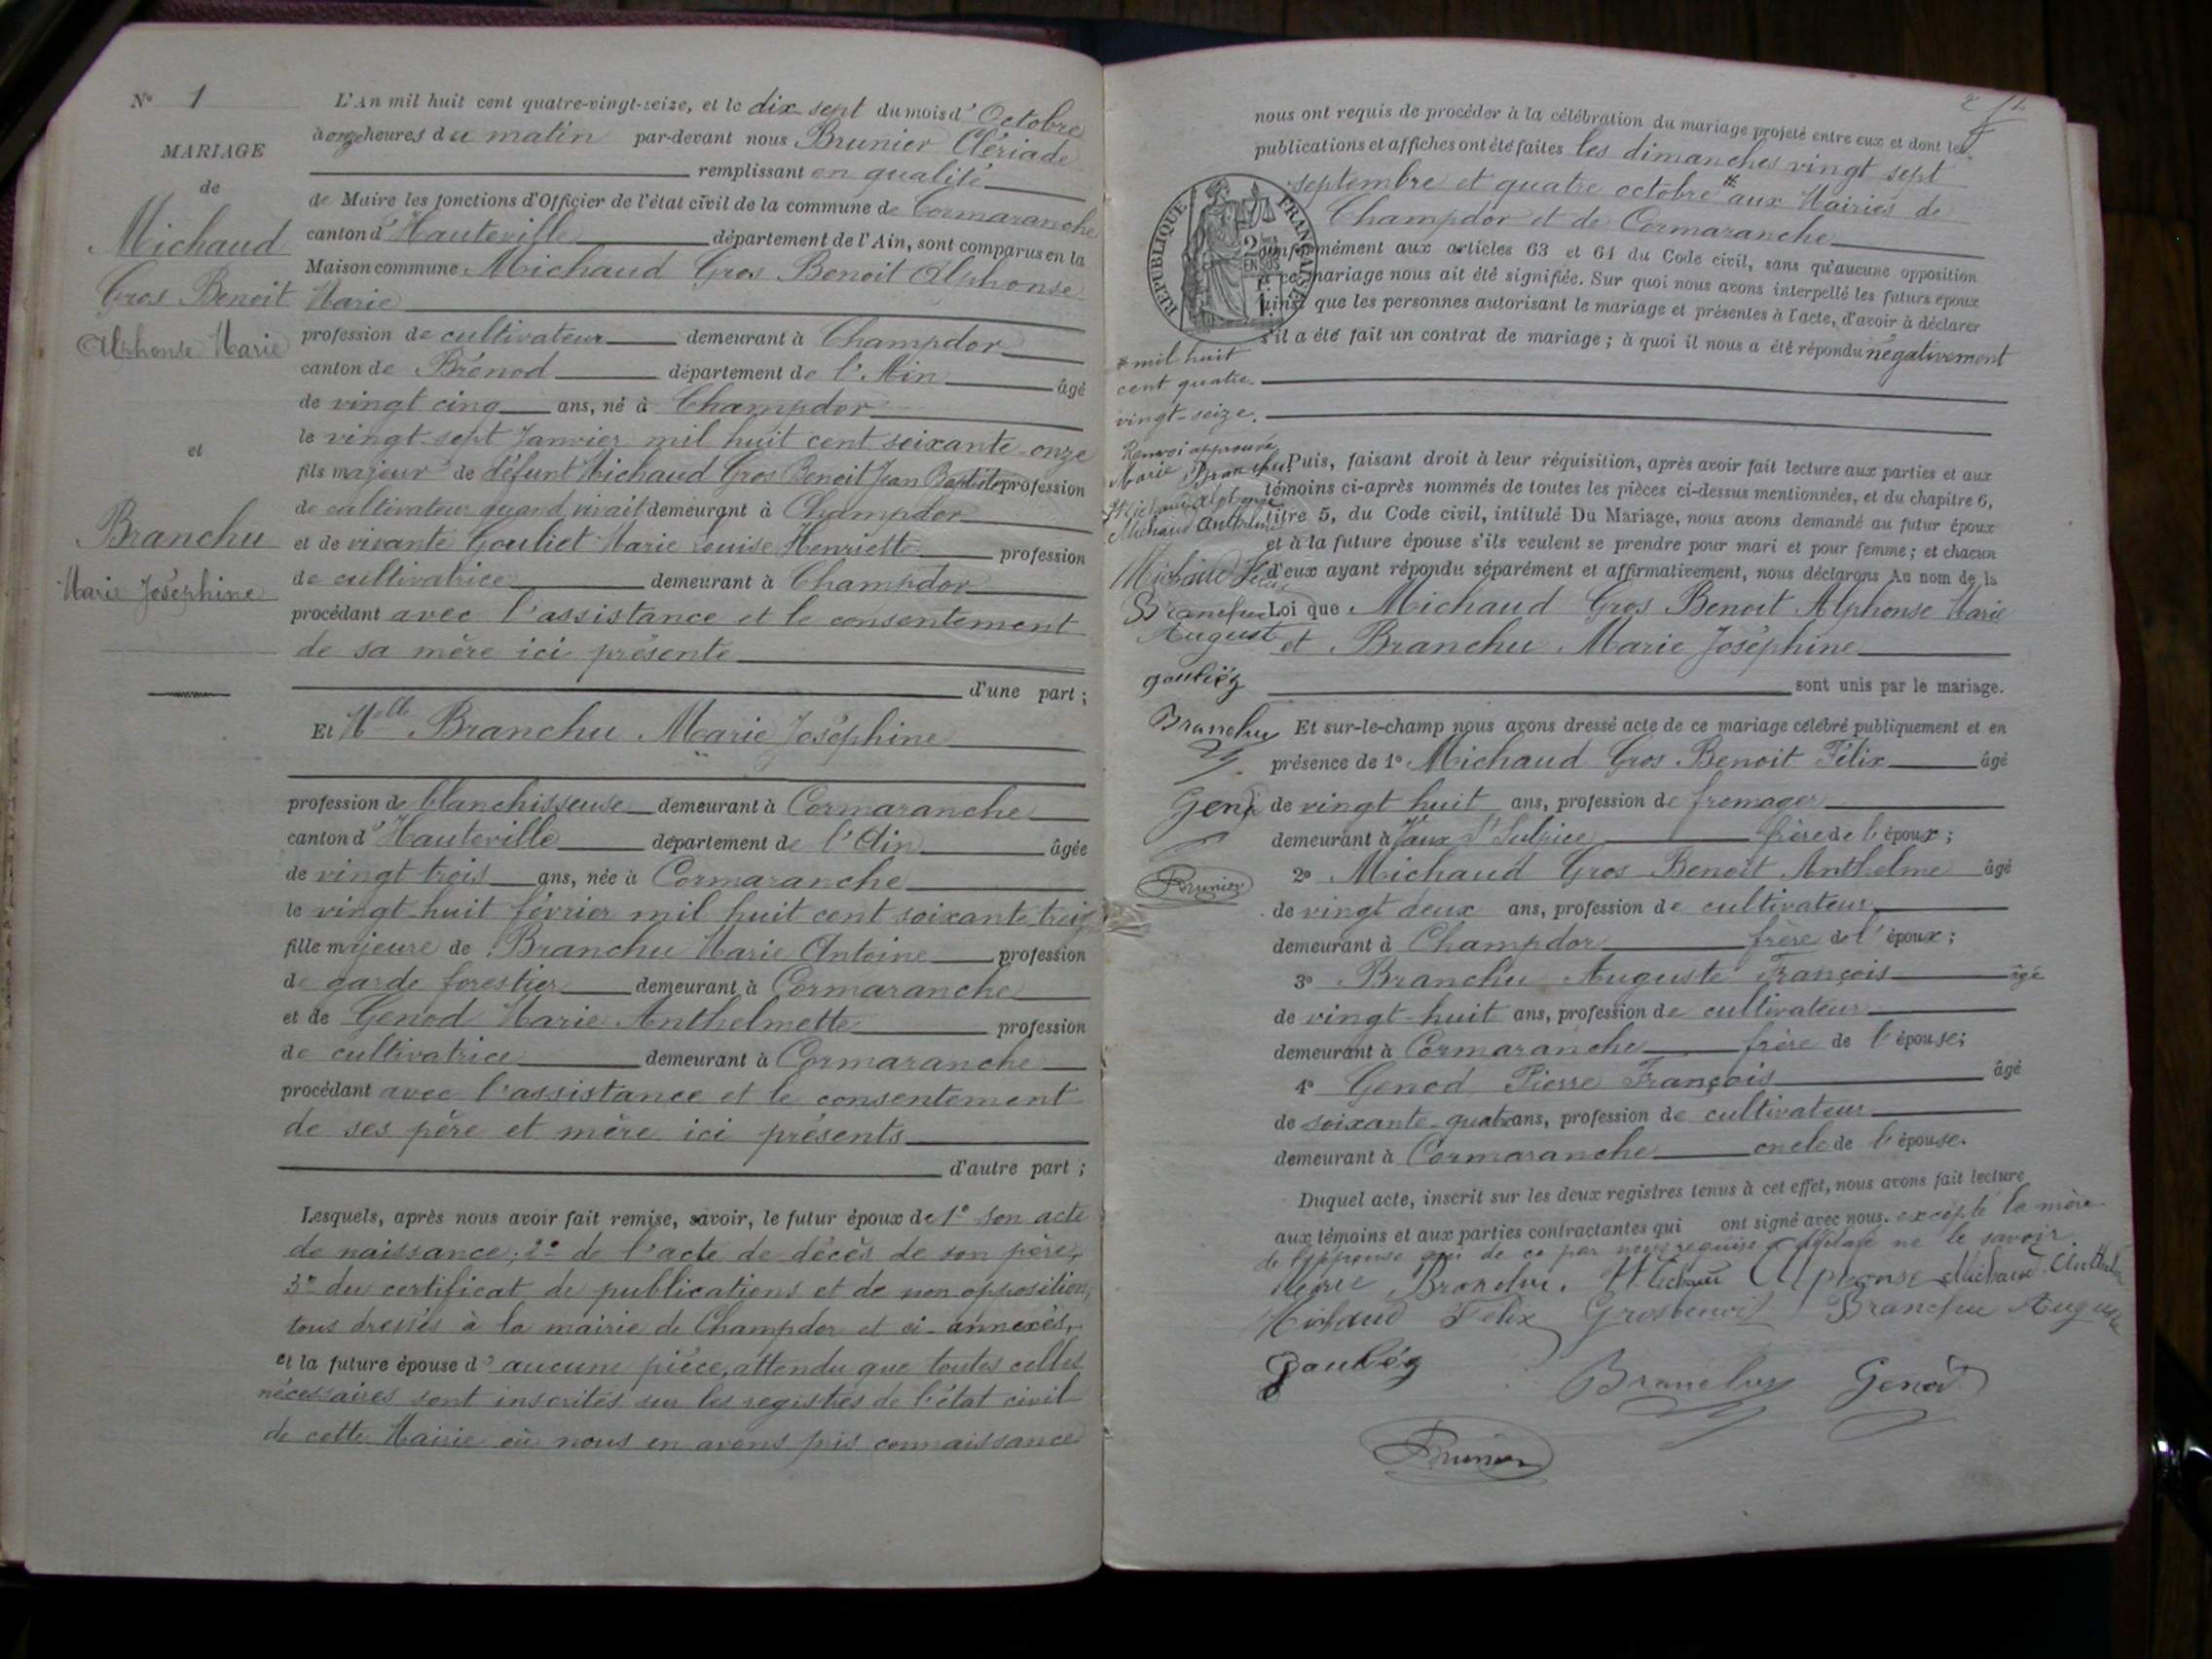 N° 1
MARIAGE
de
Michaud
Gros Benoit
Alphonse Marie
et
Branchu
Marie Joséphine
L'An mil huit cent quatre-vingt-seize, et le dix sept du mois d'Octobre
à onze heures du matin par-devant nous Brunier Clériade
remplissant en qualité
de Maire les fonctions d'Officier de l'état civil de la commune de Cormaranche
canton d'Hauteville département de l'Ain, sont comparus en la
Maison commune Michaud Gros Benoit Alphonse
Marie
profession de cultivateur demeurant à Champdor
canton de Brénod département de l'Ain âgé
de vingt cinq ans, né à Champdor
le vingt-sept Janvier mil huit cent soixante onze
fils majeur de défunt Michaud Gros Benoit Jean Baptiste profession
de cultivateur quand vivait demeurant à Champdor
et de vivante Gouliet Marie Louise Henriette profession
de cultivatrice demeurant à Champdor
procédant avec l'assistance et le consentement
de sa mère ici présente
d'une part ;
Et Mlle Branchu Marie Joséphine
profession de blanchisseuse demeurant à Cormaranche
canton d'Hauteville département de l'Ain âgée
de vingt trois ans, née à Cormaranche
le vingt-huit février mil huit cent soixante treize
fille majeure de Branchu Marie Antoine profession
de garde forestier demeurant à Cormaranche
et de Genod Marie Anthelmette profession
de cultivatrice demeurant à Cormaranche
procédant avec l'assistance et le consentement
de ses père et mère ici présents
d'autre part ;
Lesquels, après nous avoir fait remise, savoir, le futur époux de 1° son acte
de naissance, 2° de l'acte de décès de son père,
3° du certificat de publications et de non opposition,
tous dressés à la mairie de Champdor et ci-annexés,
et la future épouse d'aucune pièce, attendu que toutes celles
nécessaires sont inscrites sur les registres de l'état civil
de cette Mairie où nous en avons pris connaissance
nous ont requis de procéder à la célébration du mariage projeté entre eux et dont les
publications et affiches ont été faites les dimanches vingt sept
septembre et quatre octobre # aux Mairies de
Champdor et de Cormaranche
RÉPUBLIQUE FRANÇAISE
conformément aux articles 63 et 64 du Code civil, sans qu'aucune opposition
à ce mariage nous ait été signifiée. Sur quoi nous avons interpellé les futurs époux
ainsi que les personnes autorisant le mariage et présentes à l'acte, d'avoir à déclarer
s'il a été fait un contrat de mariage ; à quoi il nous a été répondu négativement
# mil huit
cent quatre
vingt-seize.
Renvoi approuvé
Marie Branchu
Michaud Alphonse
Michaud Anthelme
Michaud Félix
Branchu
August
gouliéz
Branchu
Genod
Brunier
Puis, faisant droit à leur réquisition, après avoir fait lecture aux parties et aux
témoins ci-après nommés de toutes les pièces ci-dessus mentionnées, et du chapitre 6,
titre 5, du Code civil, intitulé Du Mariage, nous avons demandé au futur époux
et à la future épouse s'ils veulent se prendre pour mari et pour femme ; et chacun
d'eux ayant répondu séparément et affirmativement, nous déclarons Au nom de la
Loi que Michaud Gros Benoit Alphonse Marie
et Branchu Marie Joséphine
sont unis par le mariage.
Et sur-le-champ nous avons dressé acte de ce mariage célébré publiquement et en
présence de 1° Michaud Gros Benoit Félix âgé
de vingt huit ans, profession de fromager
demeurant à Vaux St Sulpice frère de l'époux ;
2° Michaud Gros Benoit Anthelme âgé
de vingt deux ans, profession de cultivateur
demeurant à Champdor frère de l'époux ;
3° Branchu Auguste François âgé
de vingt-huit ans, profession de cultivateur
demeurant à Cormaranche frère de l'épouse ;
4° Genod Pierre François âgé
de soixante-quatre ans, profession de cultivateur
demeurant à Cormaranche oncle de l'épouse.
Duquel acte, inscrit sur les deux registres tenus à cet effet, nous avons fait lecture
aux témoins et aux parties contractantes qui ont signé avec nous. excepté la mère
de l'épouse qui de ce par nous requise a déclaré ne le savoir.
Marie Branchu. Michaud Alphonse Michaud Anthelme
Michaud Félix Grosbenoit Branchu Auguste
gouliéz
Branchu Genod
Brunier